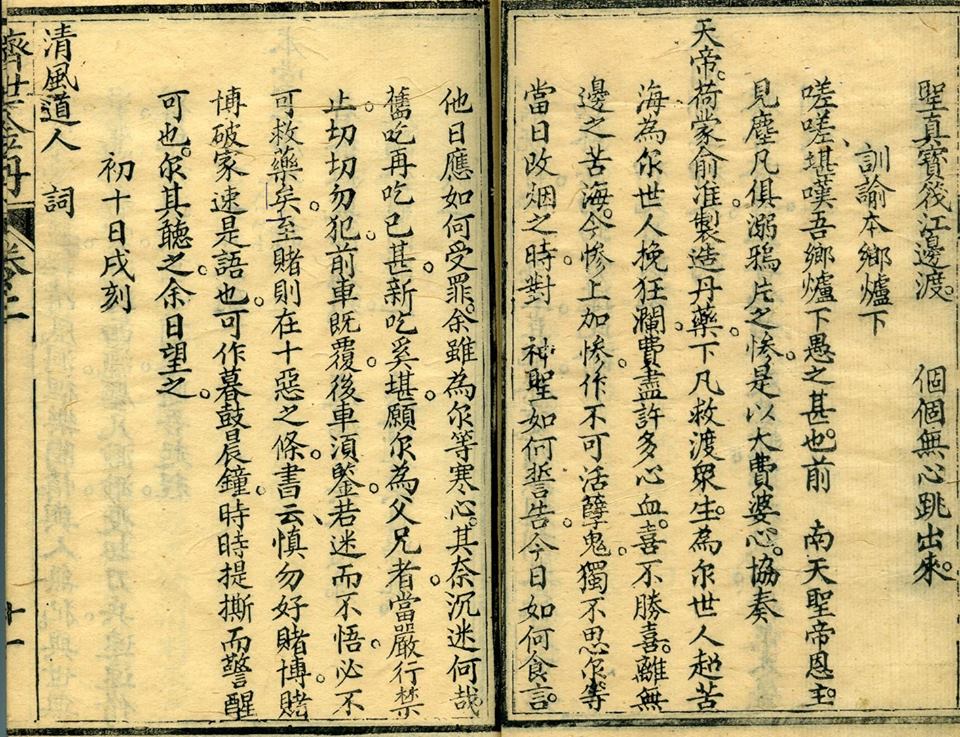 聖真寶筏江邊渡。　個個無心跳出來。
訓諭本鄉爐下
嗟嗟、堪嘆吾鄉爐下愚之甚也。前　南天聖帝恩主。
見塵凡俱溺鴉片之慘。是以大費婆心。協奏
天帝。荷蒙俞准。製造丹藥。下凡救渡眾生。為尔世人超苦
海。為尔世人挽狂瀾。費盡許多心血。喜不勝喜。離無
邊之苦海。今慘上加慘。作不可活孽鬼。獨不思尔等
當日改烟之時。對　神聖如何誓告。今日如何食言。
他日應如何受罪。余雖為尔等寒心。其奈沉迷何哉。
舊吃再吃已甚。新吃奚堪。願尔為父兄者。當嚴行禁
止。切切勿犯。前車既覆。後車須鑒。若迷而不悟。必不
可救藥矣。至賭則在十惡之條。書云、慎勿好賭博。賭
博破家。速是語也。可作暮鼓晨鐘。時時提撕而警醒
可也。尔其聽之。余日望之。
初十日戌刻
清風道人　詞
濟世金丹　卷二　十一